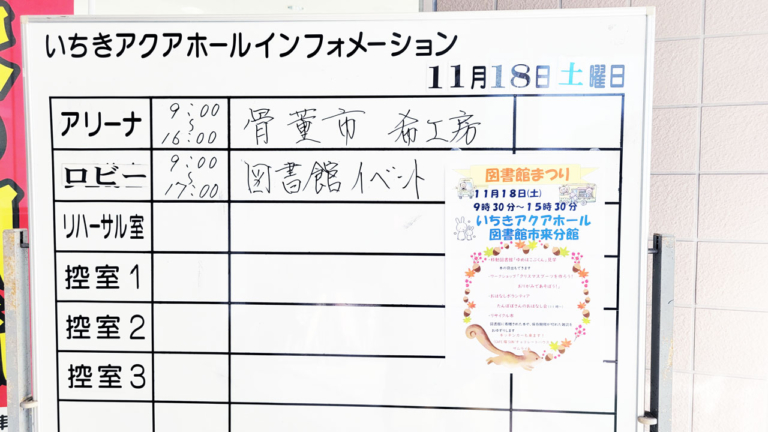 いちきアクアホールインフォメーション
11月18日土曜日
アリーナ 9:00～16:00 骨董市 希工房
ロビー 9:00～17:00 図書館イベント
リハーサル室
控室1
控室2
控室3
図書館まつり
11月18日(土)
9時30分～15時30分
いちきアクアホール
図書館市来分館